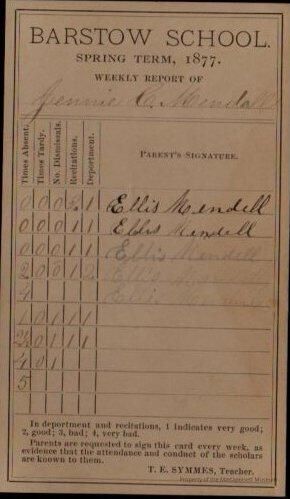 BARSTOW SCHOOL.
SPRING TERM, 1877.
WEEKLY REPORT OF
Jennie C. Mendall
Times Absent.
Times Tardy.
No. Dismissals.
Recitations.
Deportment.
PARENT'S SIGNATURE.
0 0 0 2 1 Ellis Mendell
0 0 0 1 1 Ellis Mendell
0 0 0 1 1 Ellis Mendell
2 0 0 1 2 Ellis
4 Ellis
1 0 1 1 1
0 1 1 1
4 0 1
5
In deportment and recitations, 1 indicates very good;
2, good; 3, bad; 4, very bad.
Parents are requested to sign this card every week, as
evidence that the attendance and conduct of the scholars
are known to them.
T. E. SYMMES, Teacher.
Property of the Mattapoisett Museum